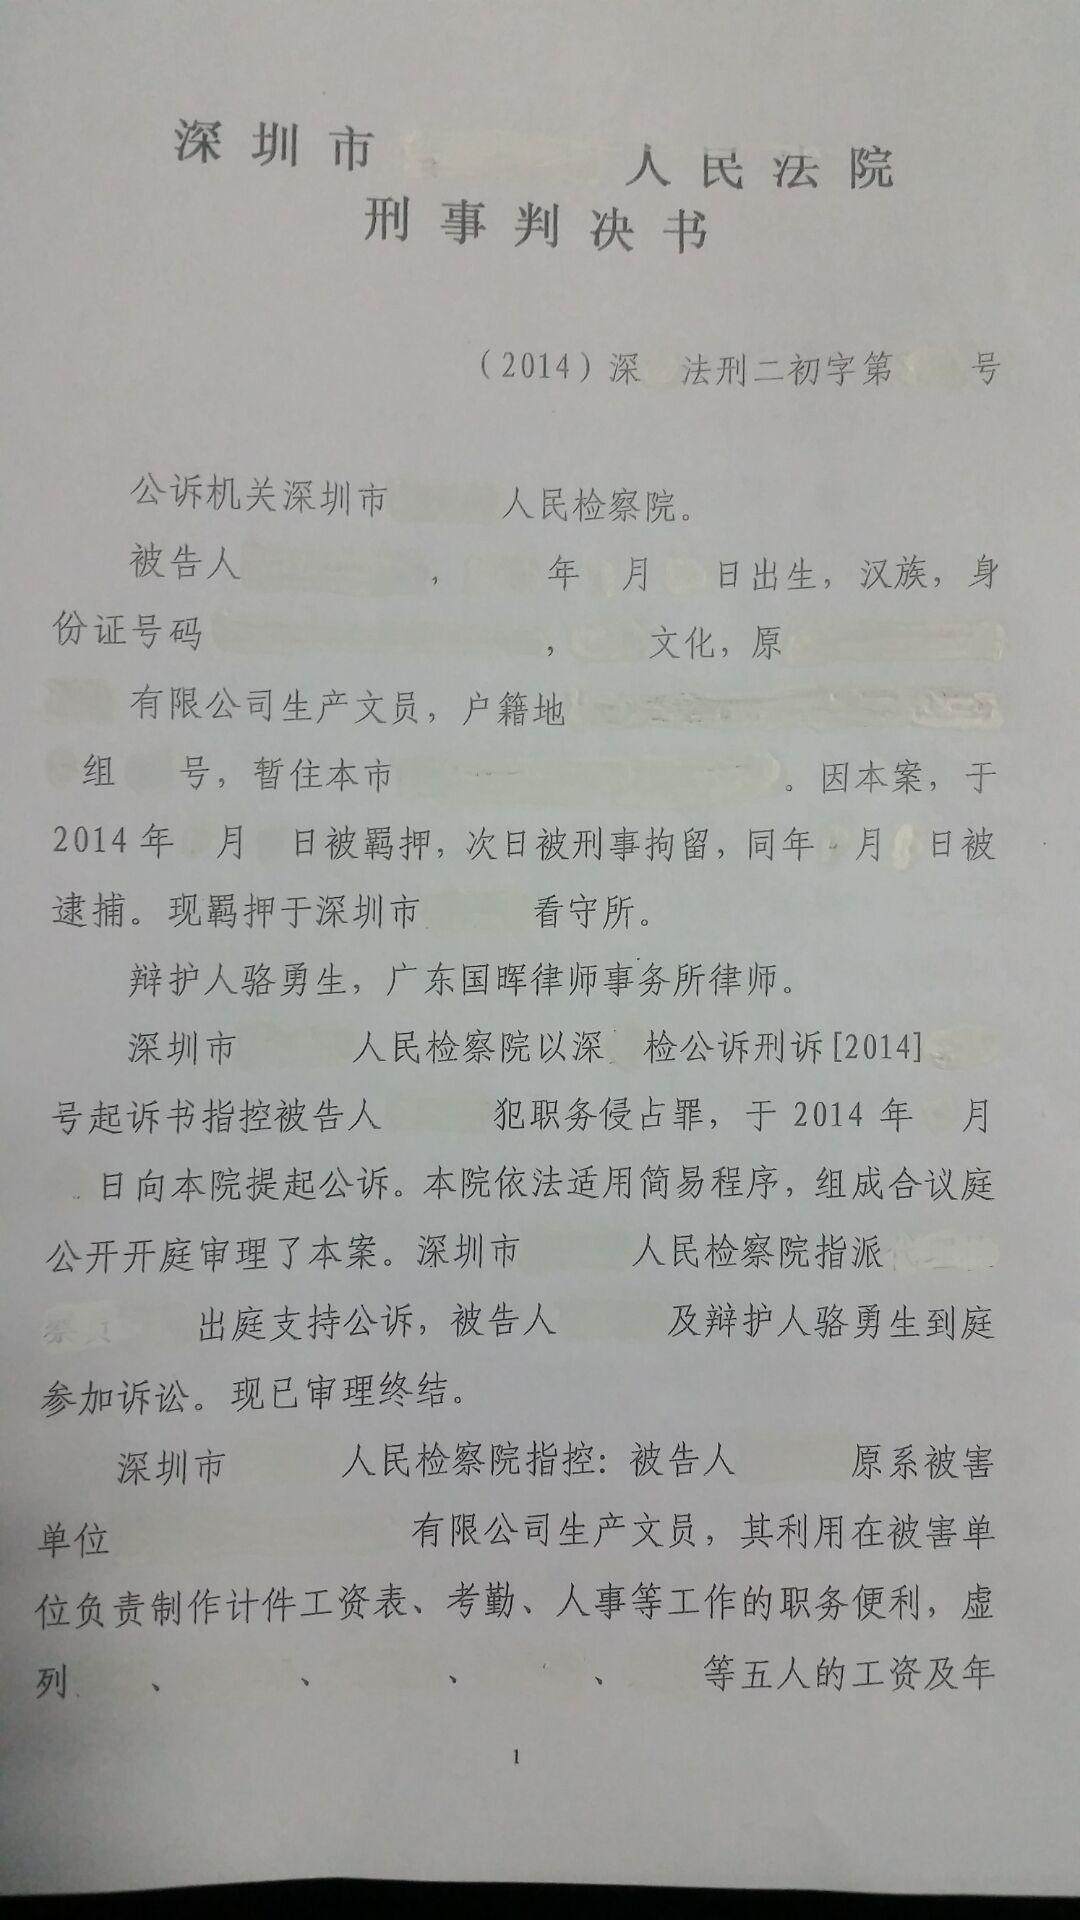 深圳市 人民法院
刑事判决书
（2014）深 法刑二初字第 号
公诉机关深圳市 人民检察院。
被告人 ， 年 月 日出生，汉族，身
份证号码 ， 文化，原
有限公司生产文员，户籍地
组 号，暂住本市 。因本案，于
2014年 月 日被羁押，次日被刑事拘留，同年 月 日被
逮捕。现羁押于深圳市 看守所。
辩护人骆勇生，广东国晖律师事务所律师。
深圳市 人民检察院以深 检公诉刑诉[2014]
号起诉书指控被告人 犯职务侵占罪，于 2014 年 月
日向本院提起公诉。本院依法适用简易程序，组成合议庭
公开开庭审理了本案。深圳市 人民检察院指派
出庭支持公诉，被告人 及辩护人骆勇生到庭
参加诉讼。现已审理终结。
深圳市 人民检察院指控：被告人 原系被害
单位 有限公司生产文员，其利用在被害单
位负责制作计件工资表、考勤、人事等工作的职务便利，虚
列 、 、 、 、 等五人的工资及年
1